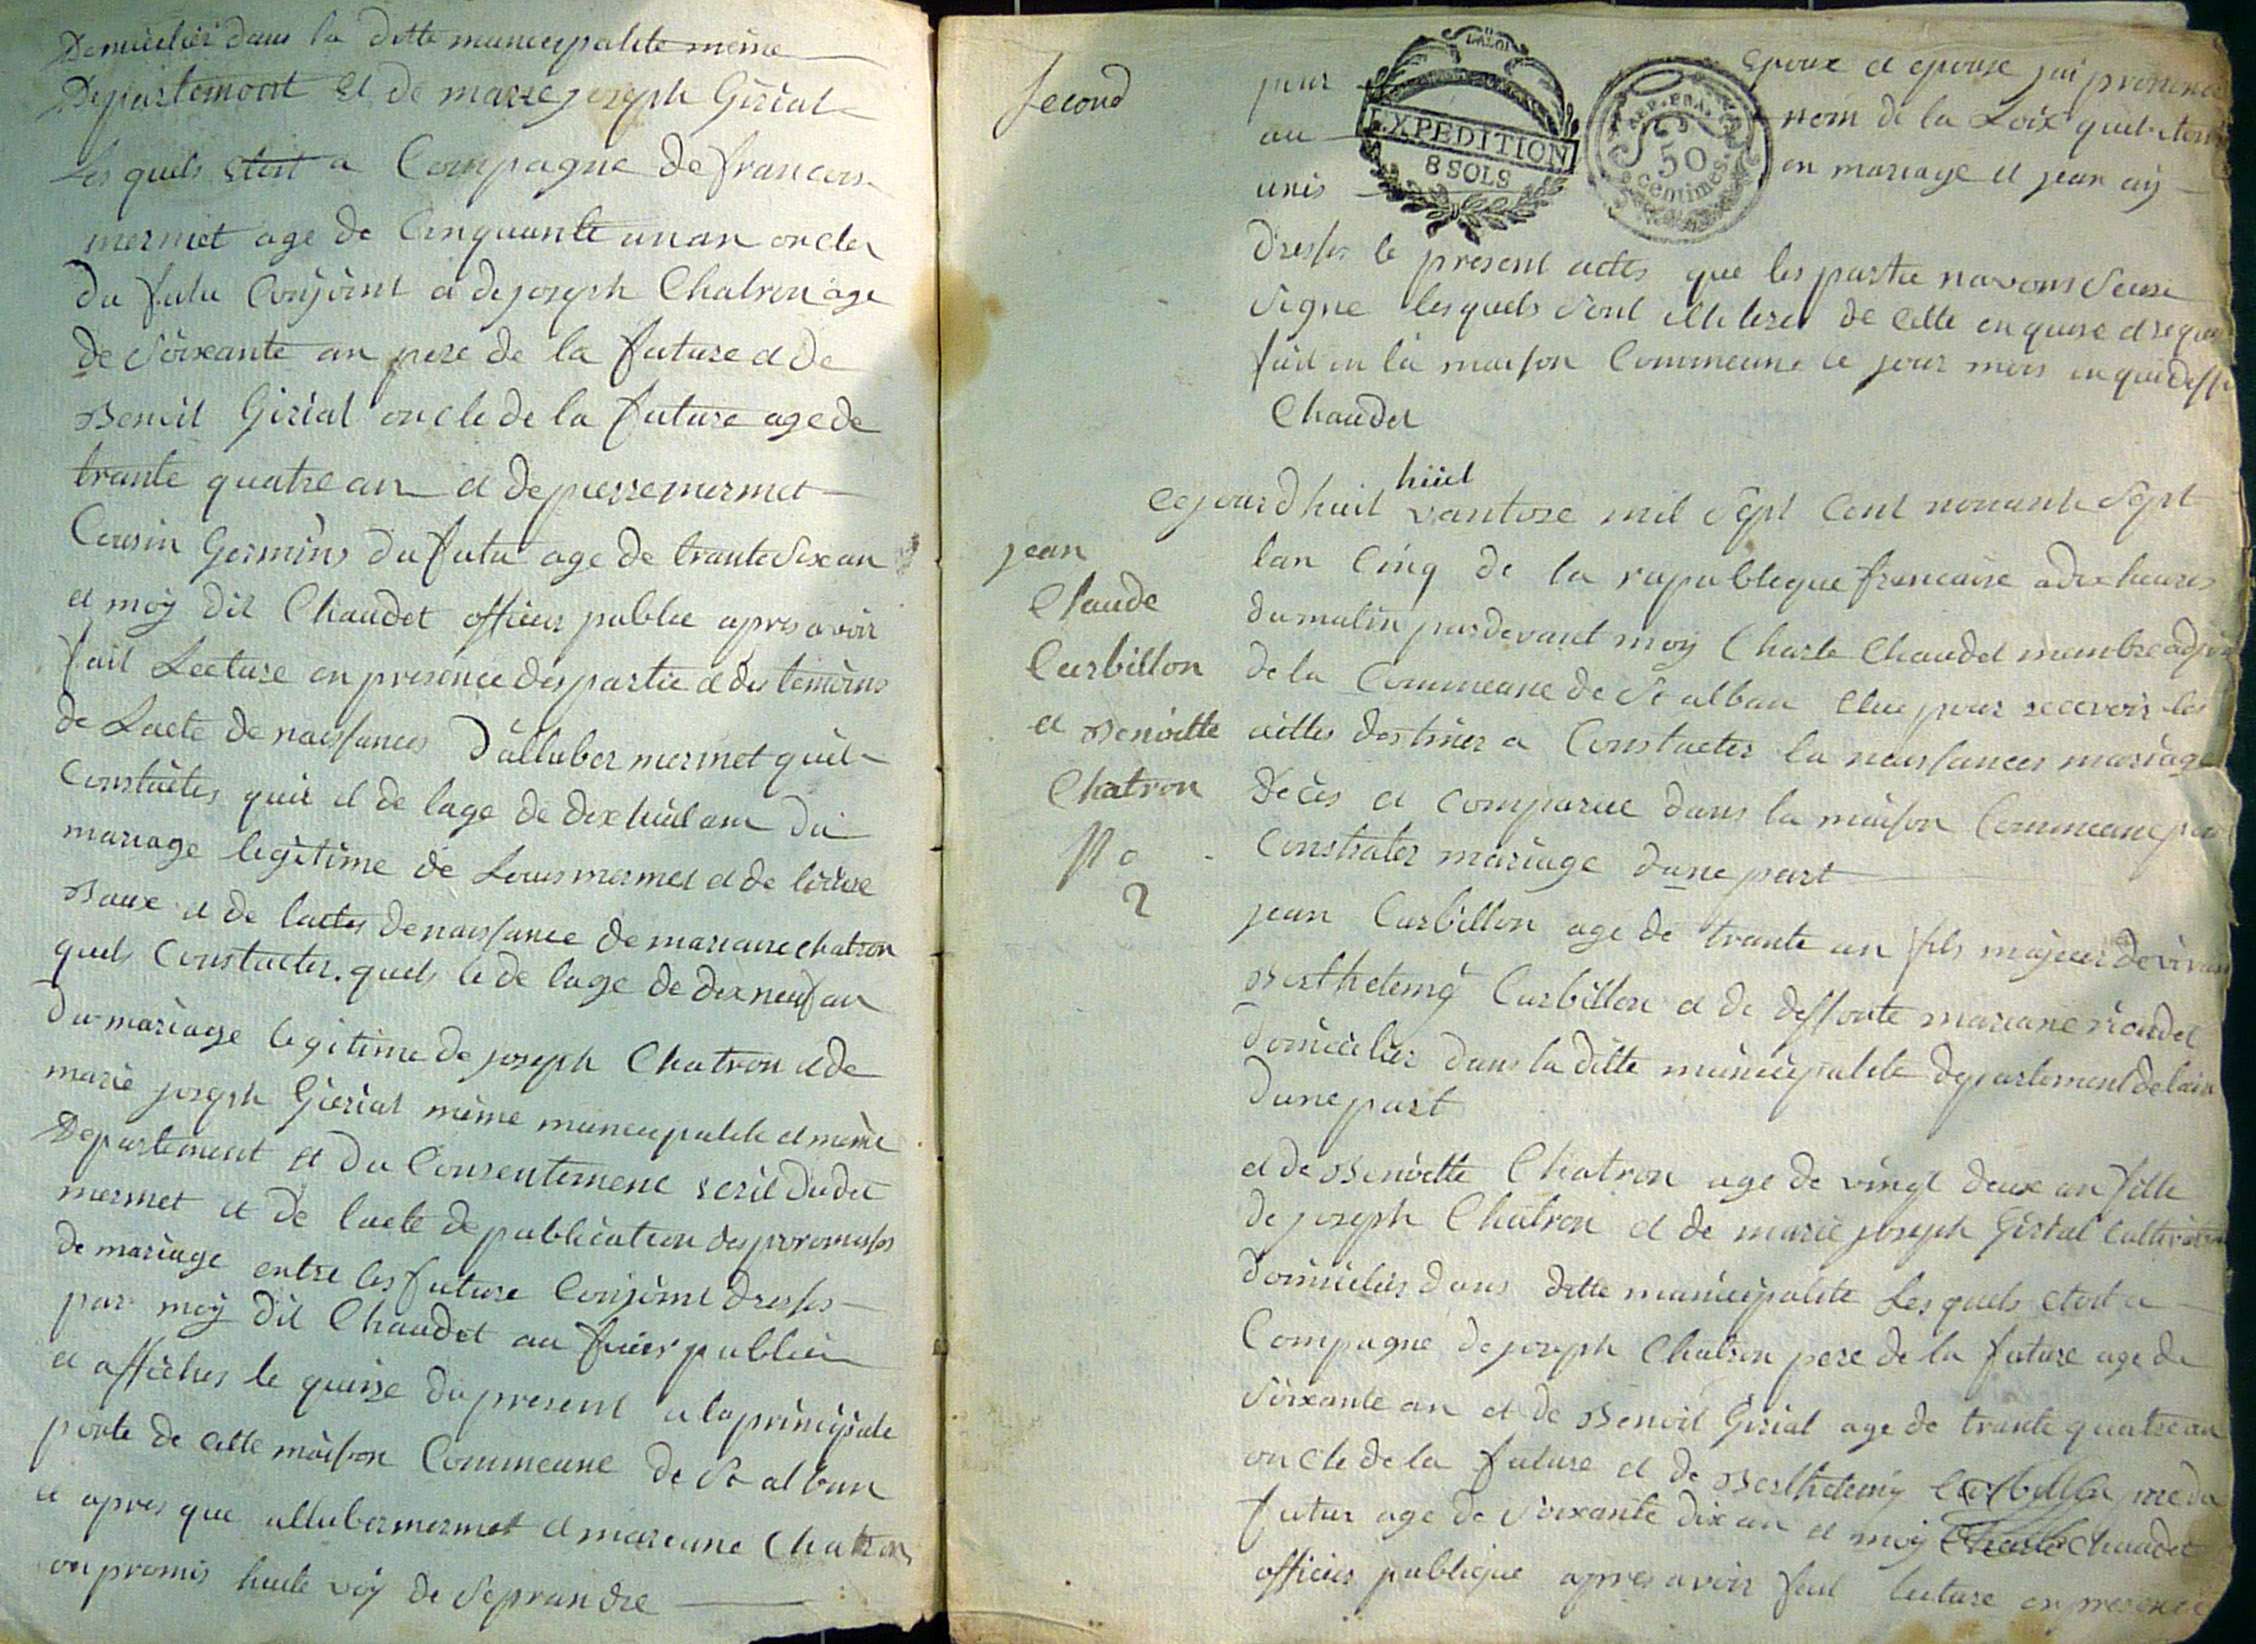 Domicilier dans la ditte municipalite même
Departement et de marie joseph Girial
Les quels etoit a Compagne de francois
mermet age de Cinquante un an oncles
du futu Conjoint et de joseph Chatron age
de Soixante an pere de la future et de
Benoit Girial oncle de la future age de
trante quatre an et de pierre mermet
Cousin Germins du futu age de trante Six an
et moÿ dit Chaudet officier public apres avoir
fait Lecture en presence des partie et des temoins
de Lacte de naissances D'alluber mermet quil
Constates quil et de lage de dix huit an du
mariage legitime de Louis mermet et de
Baux et de lactes de naissance de mariane chatron
quels Constacter quels le de lage de dix neuf an
du mariage legitime de joseph Chatron et de
marie joseph Girial même municipalite et même
Departement et du Consentement ecrit dudit
mermet et de lacte de publication des promesses
de mariage entre les future Conjoint dresses
par moÿ dit Chaudet publier
et affiches le quinze du present a la principale
porte de cette maison Commune de St alban
et apres que alluber mermet et mariane Chatron
on promis haute voÿ de se prandre
Second
pour Epoux et epouse jai prononce
au nom de la Loix
unis en mariage et jean aÿ
LA LOI
EXPEDITION
8 SOLS
50
centimes
dresses le present actes que les partie navons Seue
Signe lesquels sont illiteres de cette
fait en la maison Commune le jour mois
Chaudet
Cejourdhuit huit vantose mil Sept Cent nonante Sept
lan Cinq de la republeque francaise a dix heures
du matin par devant moÿ Charle Chaudet membre adjoint
de la Commune de St alban elue pour recevoir les
actes destines a Constacter la naissances mariage
Décès et comparue dans la maison Commune pour
Constrater mariage dune part
jean
Claude
Curbillon
et Benoitte
Chatron
No
2
jean Curbillon age de trante an fils majeur de vivan
Berthelemÿ Curbillon et de deffonte mariane
domicilier dans la ditte municipalite departement de lain
dune part
et de Benoitte Chatron age de vingt deux an fille
de joseph Chatron et de marie joseph Girial
domicilies dans ditte municipalite Lesquels etoit a
Compagne de joseph Chatron pere de la future age de
Soixante an et de Benoit Girial age de trante quatre an
oncle de la future et de Berthelemÿ Curbillon pere du
futur age de Soixante dix an et moÿ Charle Chaudet
officier publique apres avoir fait lecture en presence